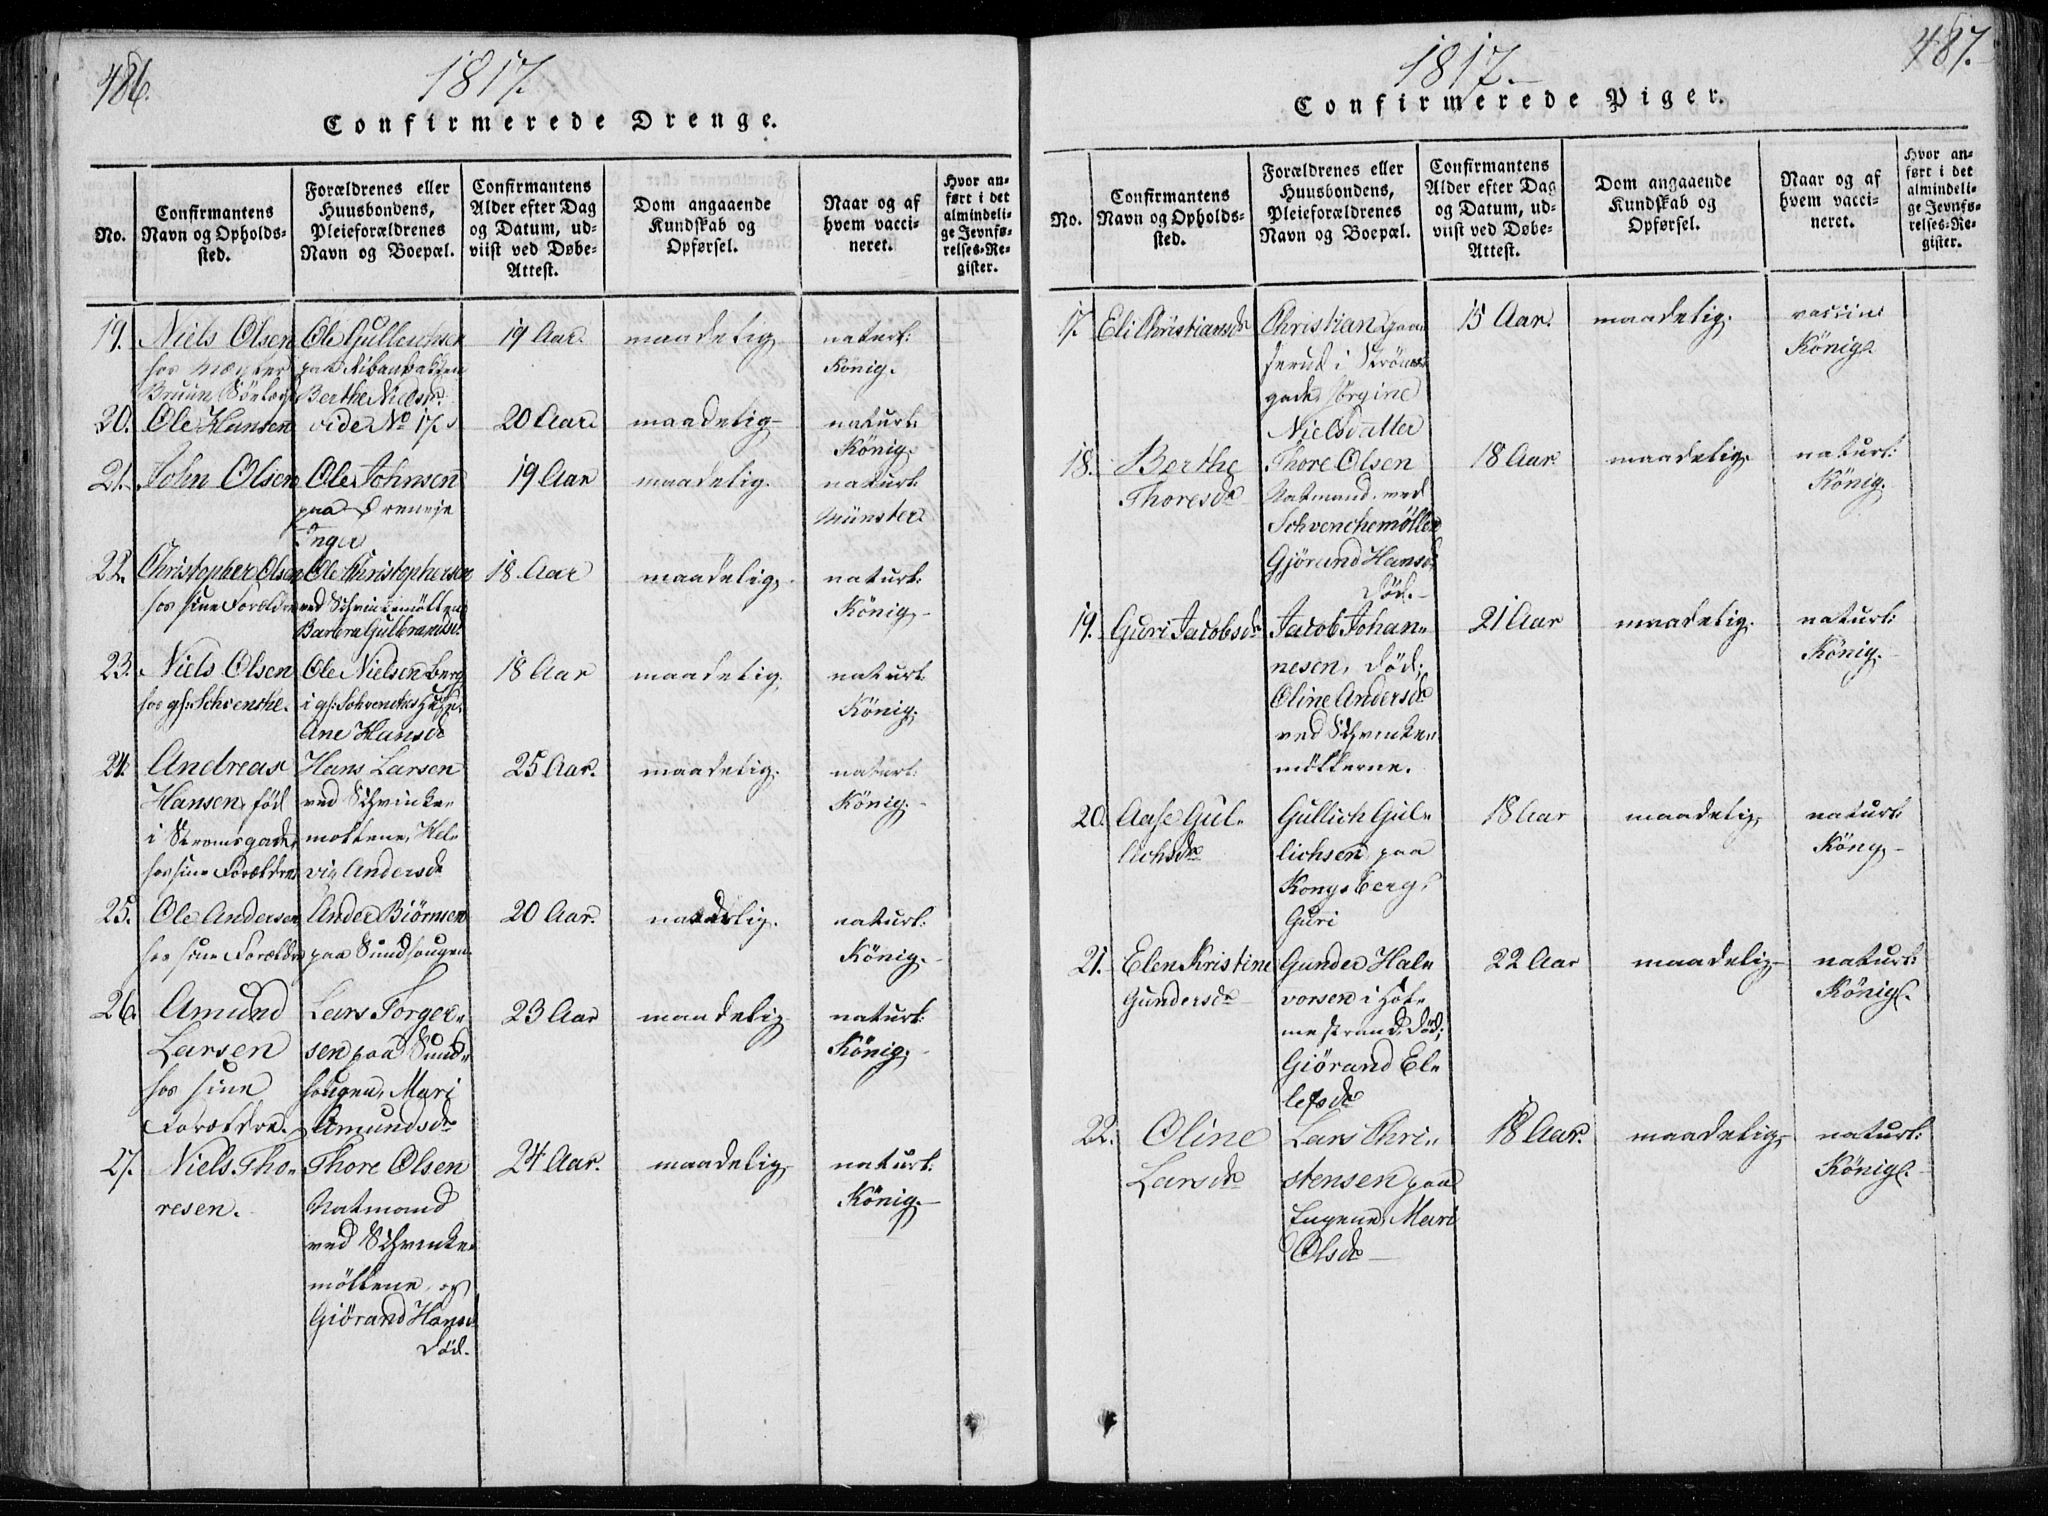 486.
1817.
Confirmerede Drenge.
No.
Confirmantens
Navn og Opholds-
sted.
Forældrenes eller
Huusbondens,
Pleieforældrenes
Navn og Boepæl.
Confirmantens
Alder efter Dag
og Datum, ud-
viist ved Døbe-
Attest.
Dom angaaende
Kundskab og
Opførsel.
Naar og af
hvem vacci-
neret.
Hvor an-
ført i det
almindeli-
ge Jevnfø-
relses-Re-
gister.
19. Niels Olsen
hos
Bruun
Ole Gullichsen
paa
Berthe Nielsd.
19 Aar.
maadelig
naturl:
König.
20. Ole Hansen
vide No 17.
20 Aar.
maadelig
naturl:
König.
21. John Olsen
Ole Johnsen
paa
19 Aar
maadelig.
naturl:
Münster.
22. Christopher Olsen
hos sine Forældre
Ole Christophersen
ved
Barbra Gulbrandsd.
18 Aar
maadelig,
naturl:
König.
23. Niels Olsen
hos gs: Schvenke.
Ole Nielsen Berg
i gs: Schvenckes
Ane Hansd
18 Aar
maadelig,
naturl:
König.
24. Andreas
Hansen, föd
i Strømsgade,
hos sine Forældre
Hans Larsen
ved Schvenke-
möllene, Hel-
vig Andersd
25 Aar.
maadelig.
naturl:
König.
25. Ole Andersen
hos sine Forældre
Ander Biörnsen
paa Sundhougen
20 Aar.
maadelig.
naturl:
König.
26. Amund
Larsen
hos sine
Forældre.
Lars Torger-
sen paa Sund-
hougen, Mari
Amundsd
23 Aar
maadelig
naturl:
König.
27. Niels Tho-
resen.
Thore Olsen
Natmand
ved Schvenke-
möllene, og
Giörand Hansd
död.
24 Aar.
maadelig,
naturl:
König.
487.
1817.
Confirmerede Piger.
No.
Confirmantens
Navn og Opholds-
sted.
Forældrenes eller
Huusbondens,
Pleieforældrenes
Navn og Boepæl.
Confirmantens
Alder efter Dag
og Datum, ud-
viist ved Døbe-
Attest.
Dom angaaende
Kundskab og
Opførsel.
Naar og af
hvem vacci-
neret.
Hvor an-
ført i det
almindeli-
ge Jevnfø-
relses-Re-
gister.
17. Eli Christiansd
Christian
i Ströms-
gade, Jörgine
Nielsdatter
15 Aar.
maadelig.
vaccin:
König.
18. Berthe
Thoresd
Thore Olsen
Natmand, ved
Schvenchemöllen
Gjörand Hansd
död.
18 Aar.
maadelig.
naturl:
König.
19. Guri Jacobsd
Jacob Johan-
nesen, död;
Oline Andersd
ved Schvenke-
möllerne.
21 Aar
maadelig.
naturl:
König.
20. Aase Gul-
lichsd
Gullich Gul-
lichsen paa
Kongsberg,
Guri
18 Aar
maadelig,
naturl:
Köng
21. Elen Kristine
Gundersd
Gunder Hal-
vorsen i Hol-
mestrand, död;
Giörand El-
lefsd
22 Aar
maadelig
naturl:
König.
22. Oline
Larsd
Lars Chri-
stensen paa
Engene, Mari
Olsd
18 Aar.
maadelig,
naturl:
König.